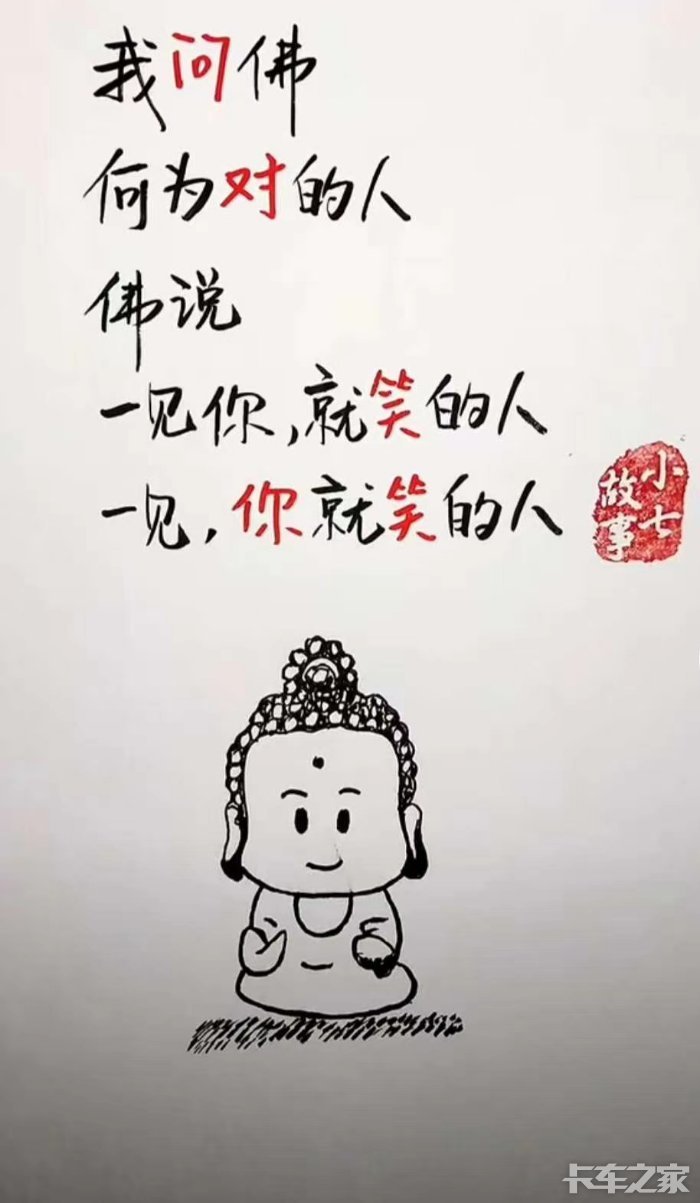 我问佛
何为对的人
佛说
一见你,就笑的人
一见,你就笑的人
小七
故事
卡车之家